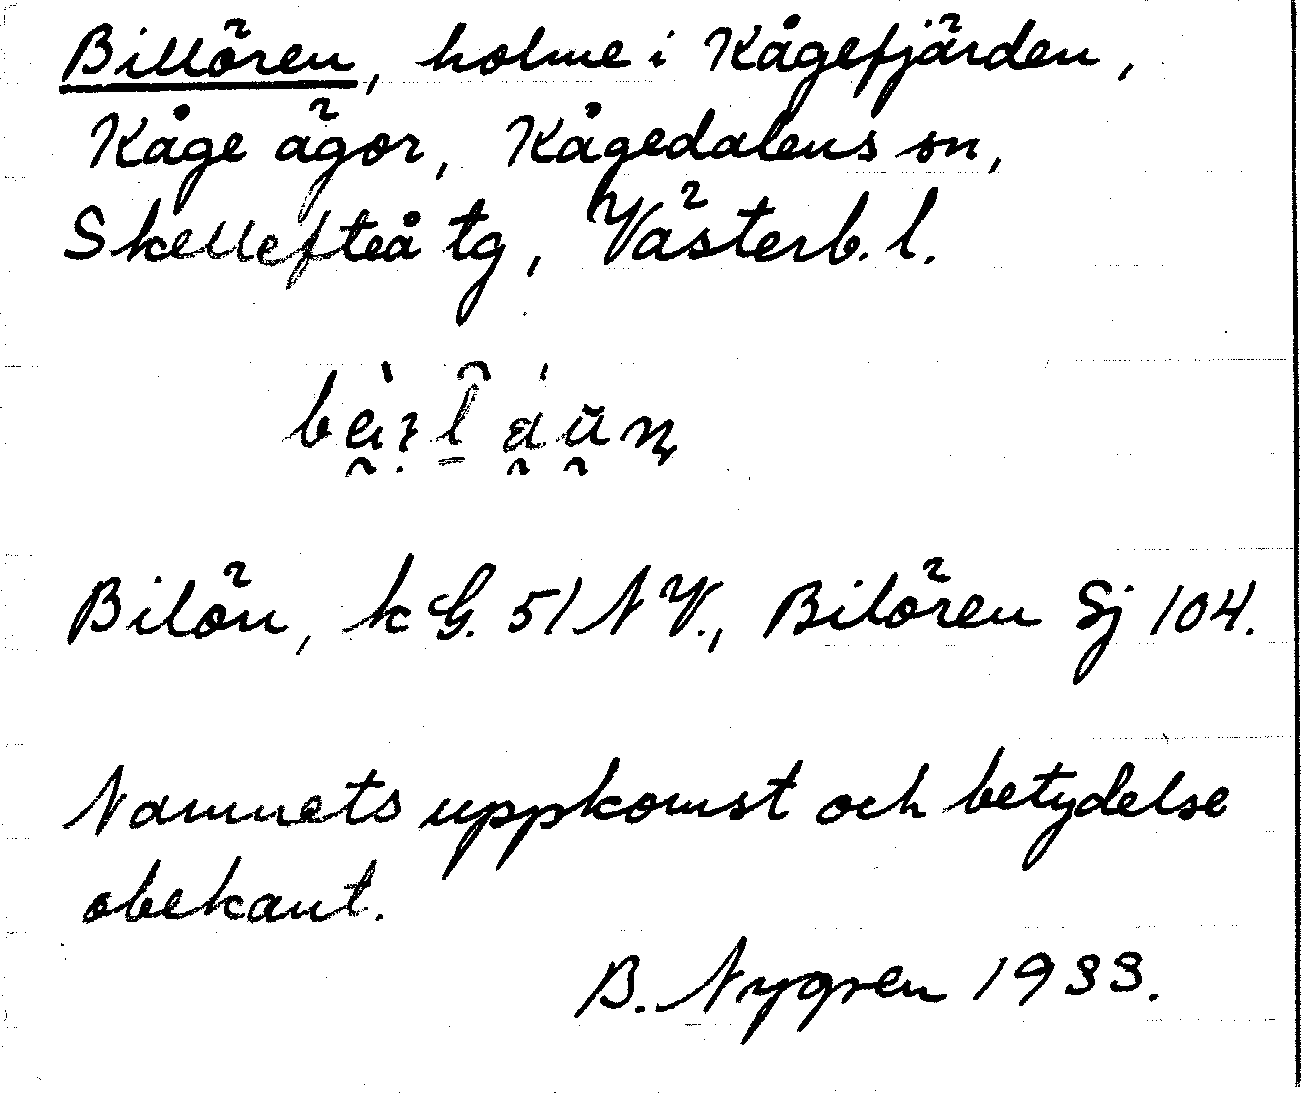 Billören, holme i Kågefjärden,
Kåge ägor, Kågedalens sn,
Skellefteå tg, Västerb. l.
Bilön, k G. 51 N V., Bilören Sj 104.
Namnets uppkomst och betydelse
obekant.
B. Nygren 1933.